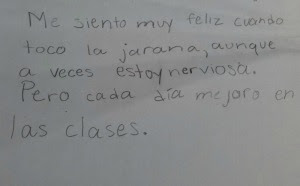 Me siento muy feliz cuando
toco la jarana, aunque
a veces estoy nerviosa.
Pero cada día mejoro en
las clases.